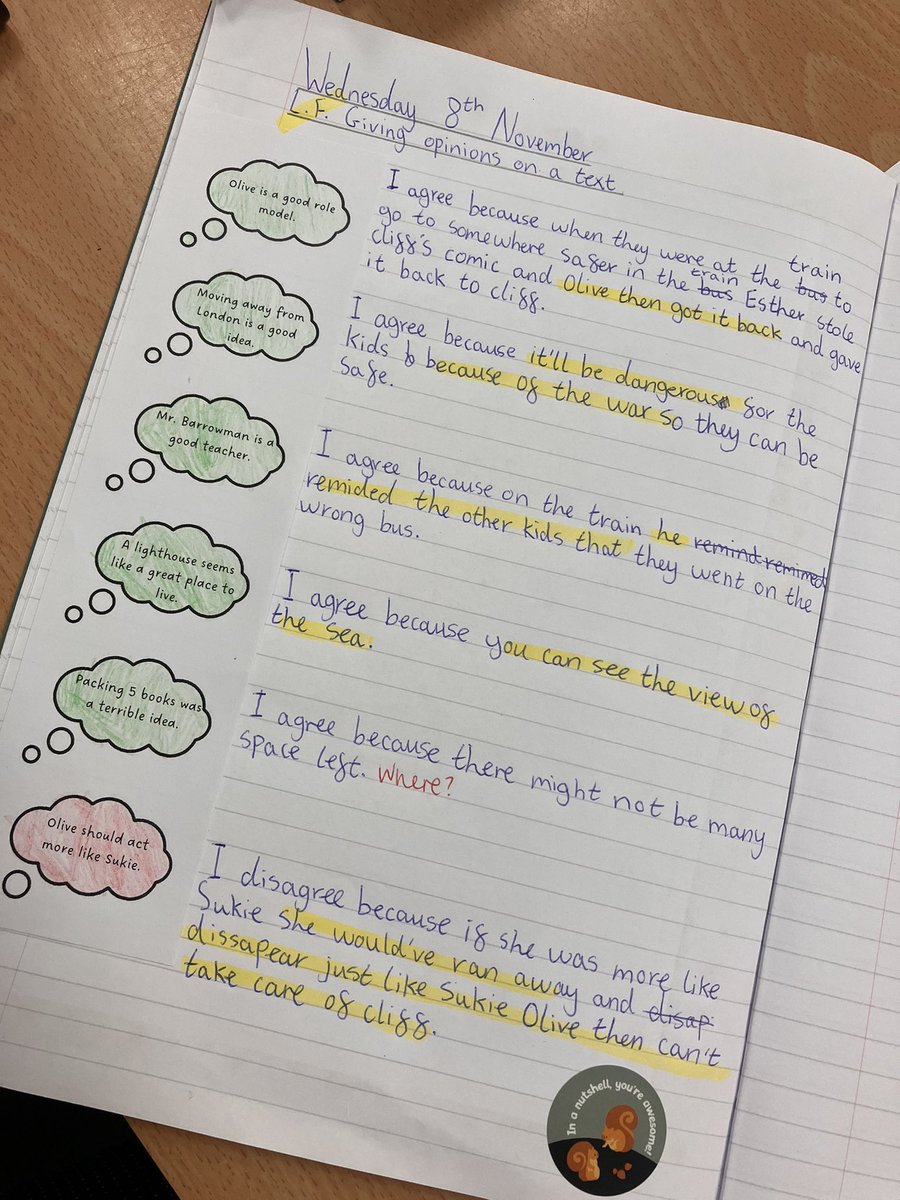 Wednesday 8th November
L.F. Giving opinions on a text
Olive is a good role
model.
I agree because when they were at the train
go to somewhere safer in the bus to
train
cliff's comic and Olive then got it back and gave
bus Esther stole
it back to cliff.
Moving away from
London is a good
idea.
I agree because it'll be dangerous for the
kids because of the war so they can be
safe.
Mr. Barrowman is a
good teacher.
I agree because on the train he remind remimed
remided the other kids that they went on the
wrong bus.
A lighthouse seems
like a great place to
live.
I agree because you can see the view of
the sea.
Packing 5 books was
a terrible idea.
I agree because there might not be many
space left. Where?
Olive should act
more like Sukie.
I disagree because if she was more like
Sukie she would've ran away and disap
dissapear just like Sukie Olive then can't
take care of cliff.
In a nutshell, you're awesome!